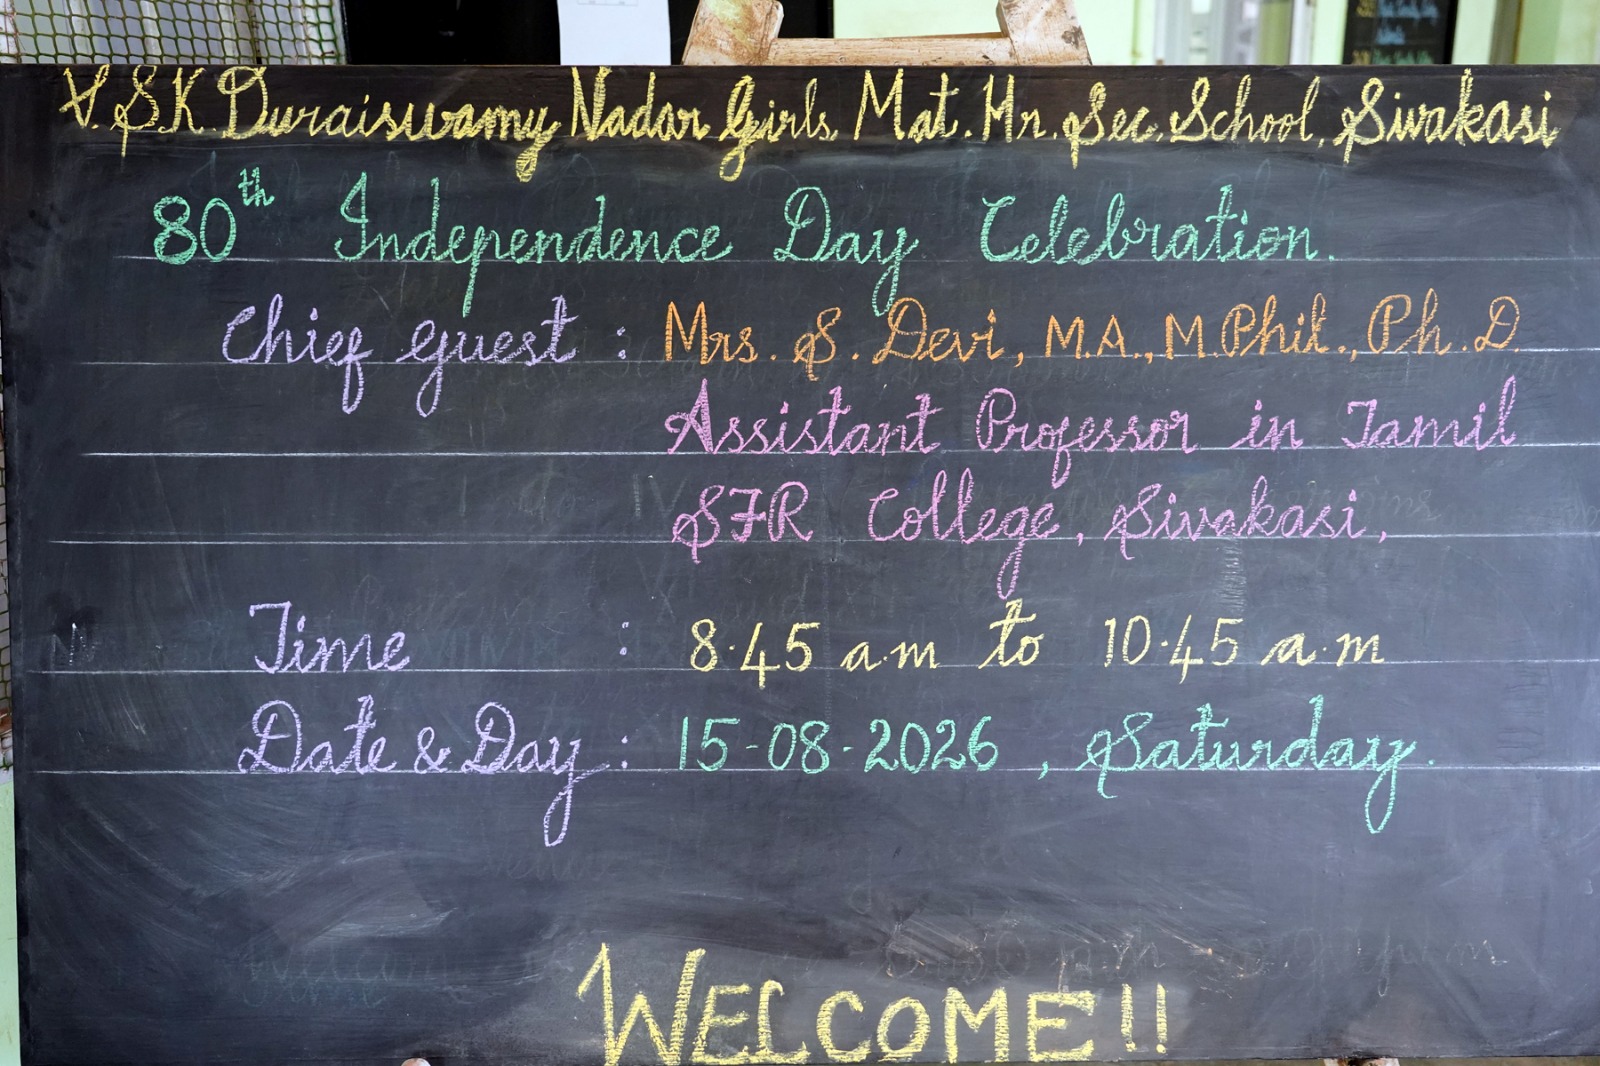 V.S.K. Duraiswamy Nadar Girls Mat. Hr. Sec. School, Sivakasi
80th Independence Day Celebration.
Chief guest : Mrs. S. Devi, M.A., M.Phil., Ph.D.
Assistant Professor in Tamil
SFR College, Sivakasi,
Time : 8.45 a.m to 10.45 a.m
Date & Day : 15-08-2026, Saturday.
WELCOME!!